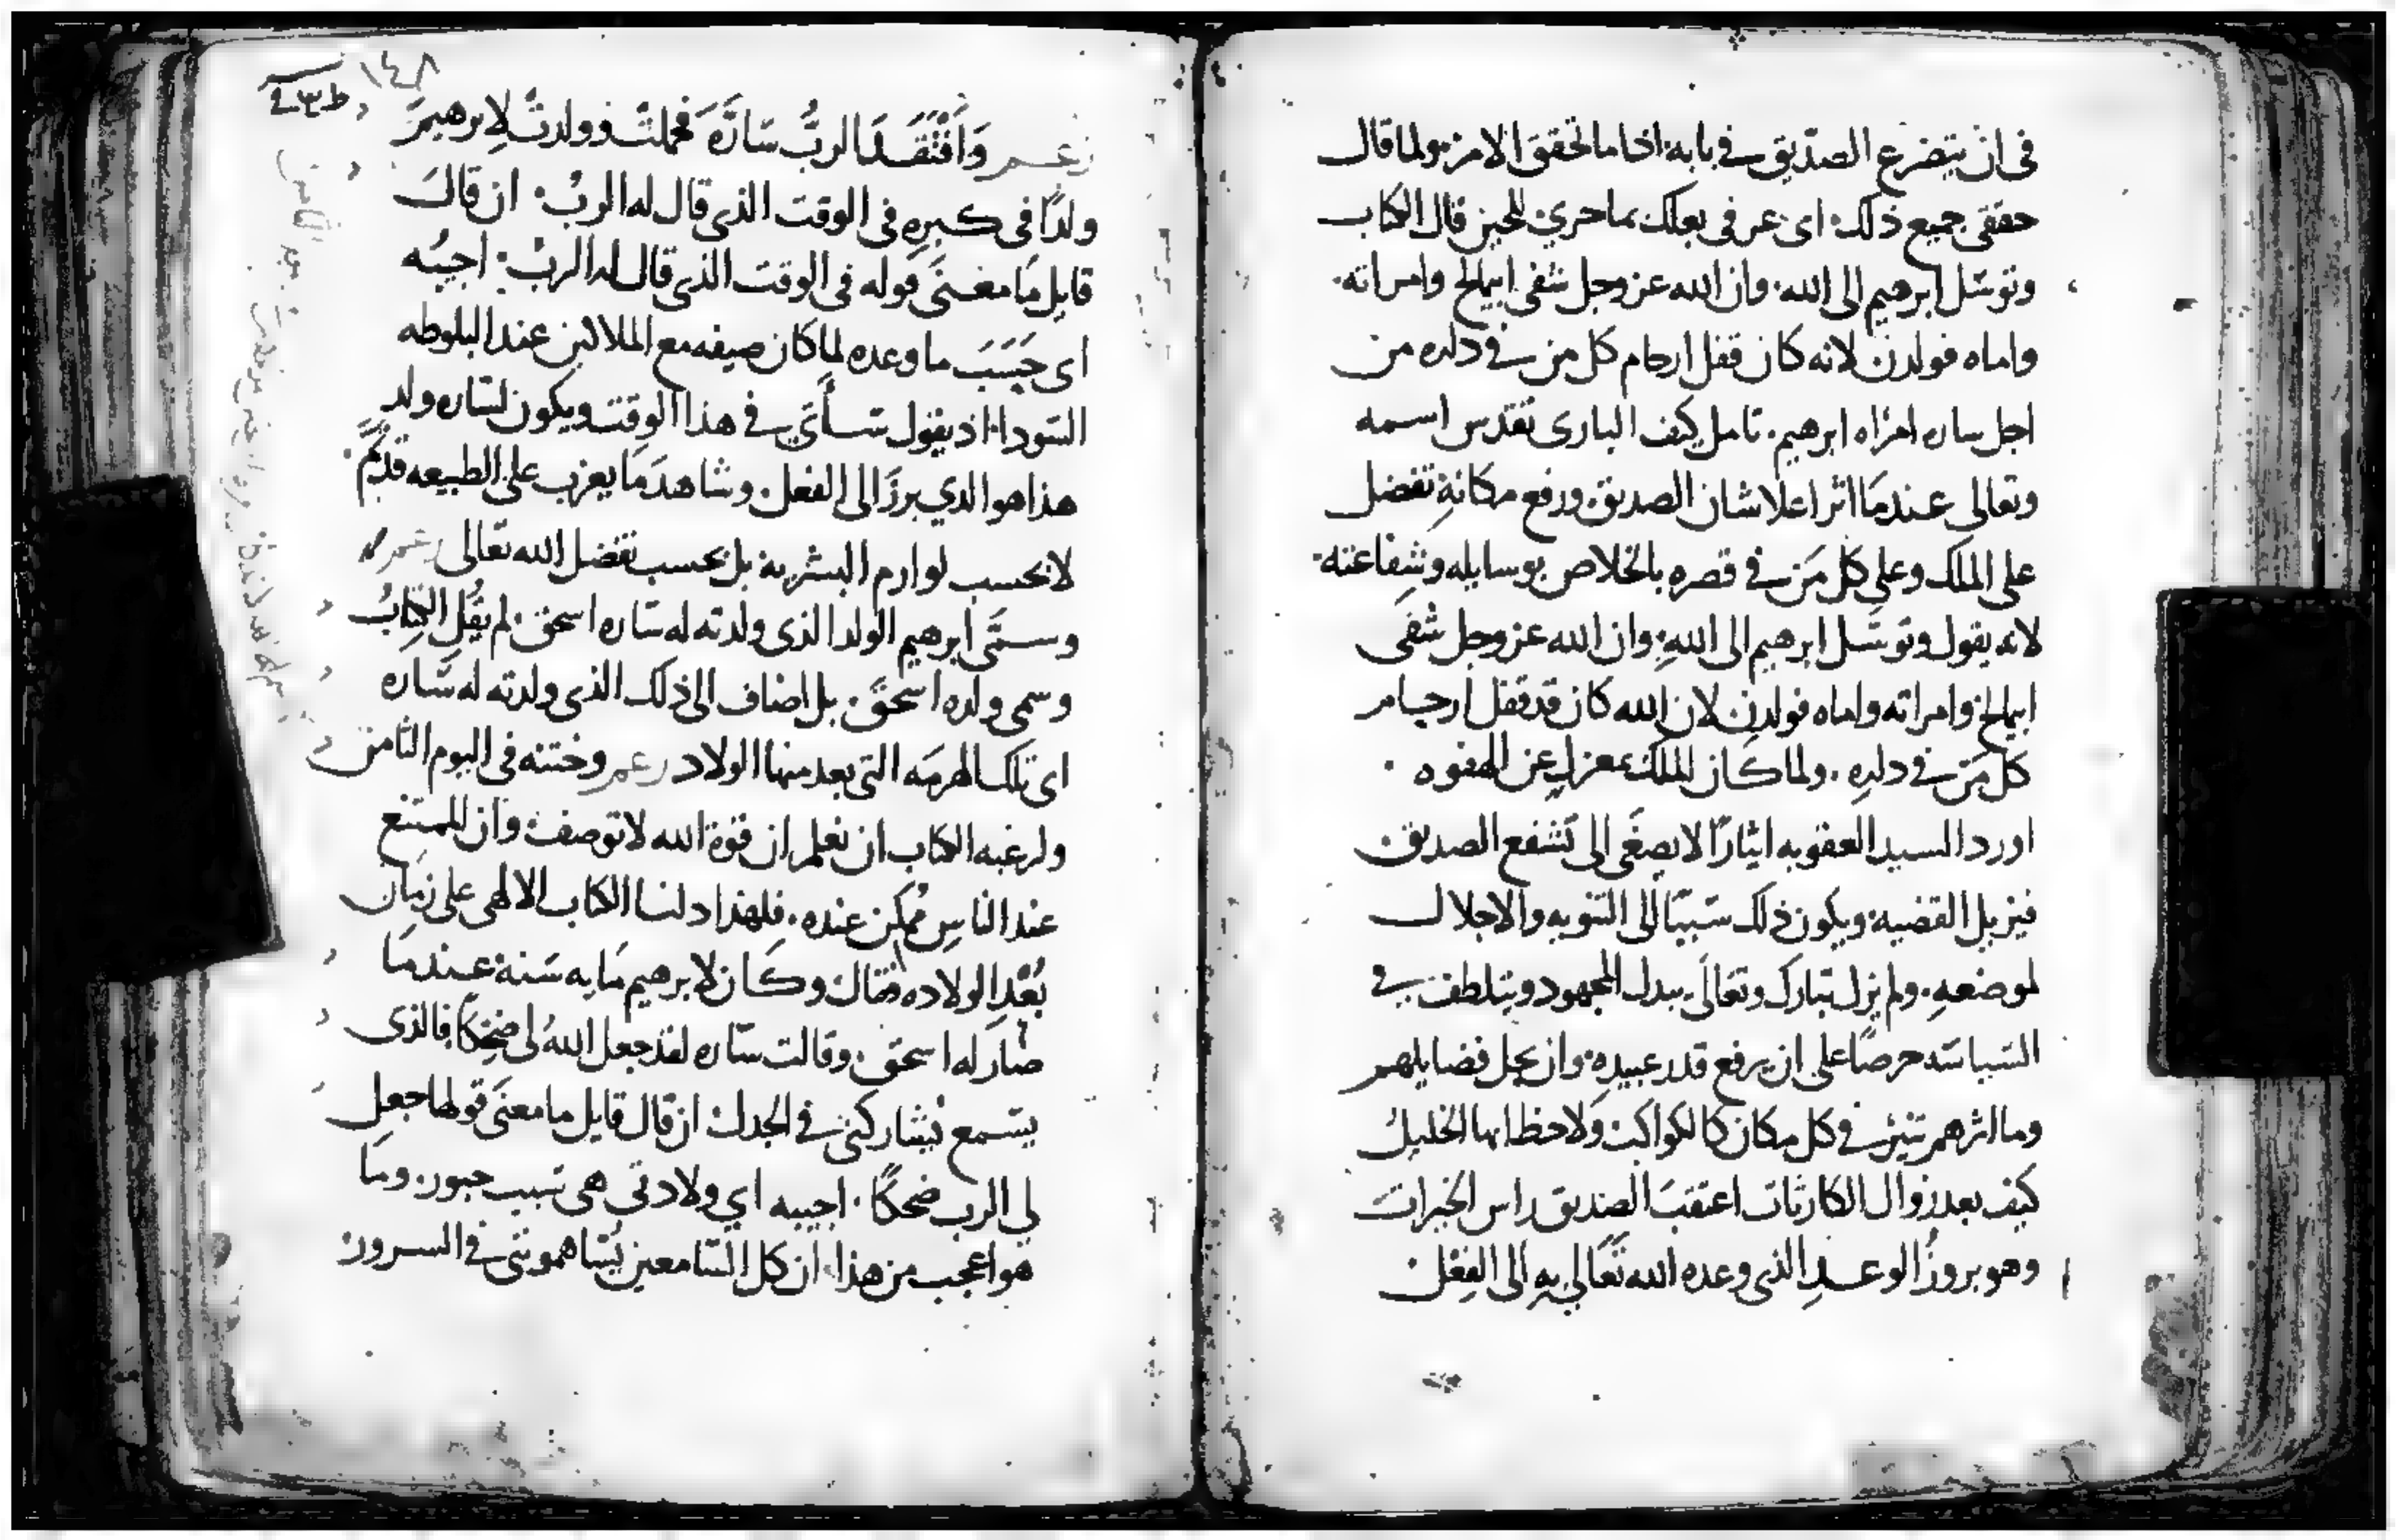 في ان يتضرع الصديق في بابه اخا ما تحقق الامر ولما قال
حققى جميع ذلك اى عرفى بعلك بما جرى للحين قال الكتاب
وتوسل ابرهيم الى الله وان الله عز وجل شفى ابيمالخ وامراته
واماه فولدن لانه كان قفل ارحام كل من في داره من
اجل ساره امراه ابرهيم تامل كيف البارى تقدس اسمه
وتعالى عندما اثر اعلا شان الصديق ورفع مكانة تفضل
على الملك وعلى كل من في قصره بالخلاص بوسايله وشفاعته
لانه يقول وتوسل ابرهيم الى الله وان الله عز وجل شفى
ابيمالخ وامراته واماه فولدن لان الله كان قد قفل ارحام
كل من في داره ولما كان الملك بمعزل عن الهفوه
اورد السيد العقوبه ايثارًا لا يصغى الى تشفع الصديق
فيزيل القضيه ويكون ذلك سببًا الى التنويه والاجلال
لموضعه ولم يزل تبارك وتعالى يبدل المجهود ويتلطف في
السياسه حرصًا على ان يرفع قدر عبيده وان يجل فضايلهم
وما اثرهم تنير في كل مكان كالكواكب ولاحظ ايها الخليل
كيف بعد زوال الكارثات اعتقب الصديق راس الخيرات
وهو بروز الوعد الذى وعده الله تعالى به الى الفعل
١٤٨
زعم وَاَفْتَقَدَ الربُّ سَارَّة فحملت وولدت لابرهيم
ولدًا في كبره في الوقت الذي قال له الرب ان قال
قايل ما معنى قوله في الوقت الذي قال له الرب اجبه
اى حسب ما وعده لما كان ضيفه مع الملاكين عند البلوطه
السودا اذ يقول سأتي في هذا الوقت ويكون لساره ولد
هذا هو الذي برز الى الفعل وشاهد ما يعزب على الطبيعه قد تم
لا بحسب لوازم البشرية بل بحسب تفضل الله تعالى زعم
وسمّى ابرهيم الولد الذى ولدته له ساره اسحق لم يقل الكتاب
وسمى ولده اسحق بل اضاف الى ذلك الذى ولدته له ساره
اى تلك الهرمه التى بعد منها الولاد زعم وختنه في اليوم الثامن
ولرغبه الكتاب ان نعلم ان قوة الله لا توصف وان الممتنع
عند الناس ممكن عنده فلهذا دلنا الكتاب الالهى على زمان
بُعْد الولاده فقال وكان لابرهيم مايه سنة عندما
صار له اسحق وقالت ساره لقد جعل الله لى ضحكًا فالذى
يتسمع يشاركنى في الجدل ان قال قايل ما معنى قولها جعل
لي الرب ضحكًا اجيبه اي ولادتى هى سبب حبور وما
هو اعجب من هذا ان كل السامعين يساهموننى في السرور